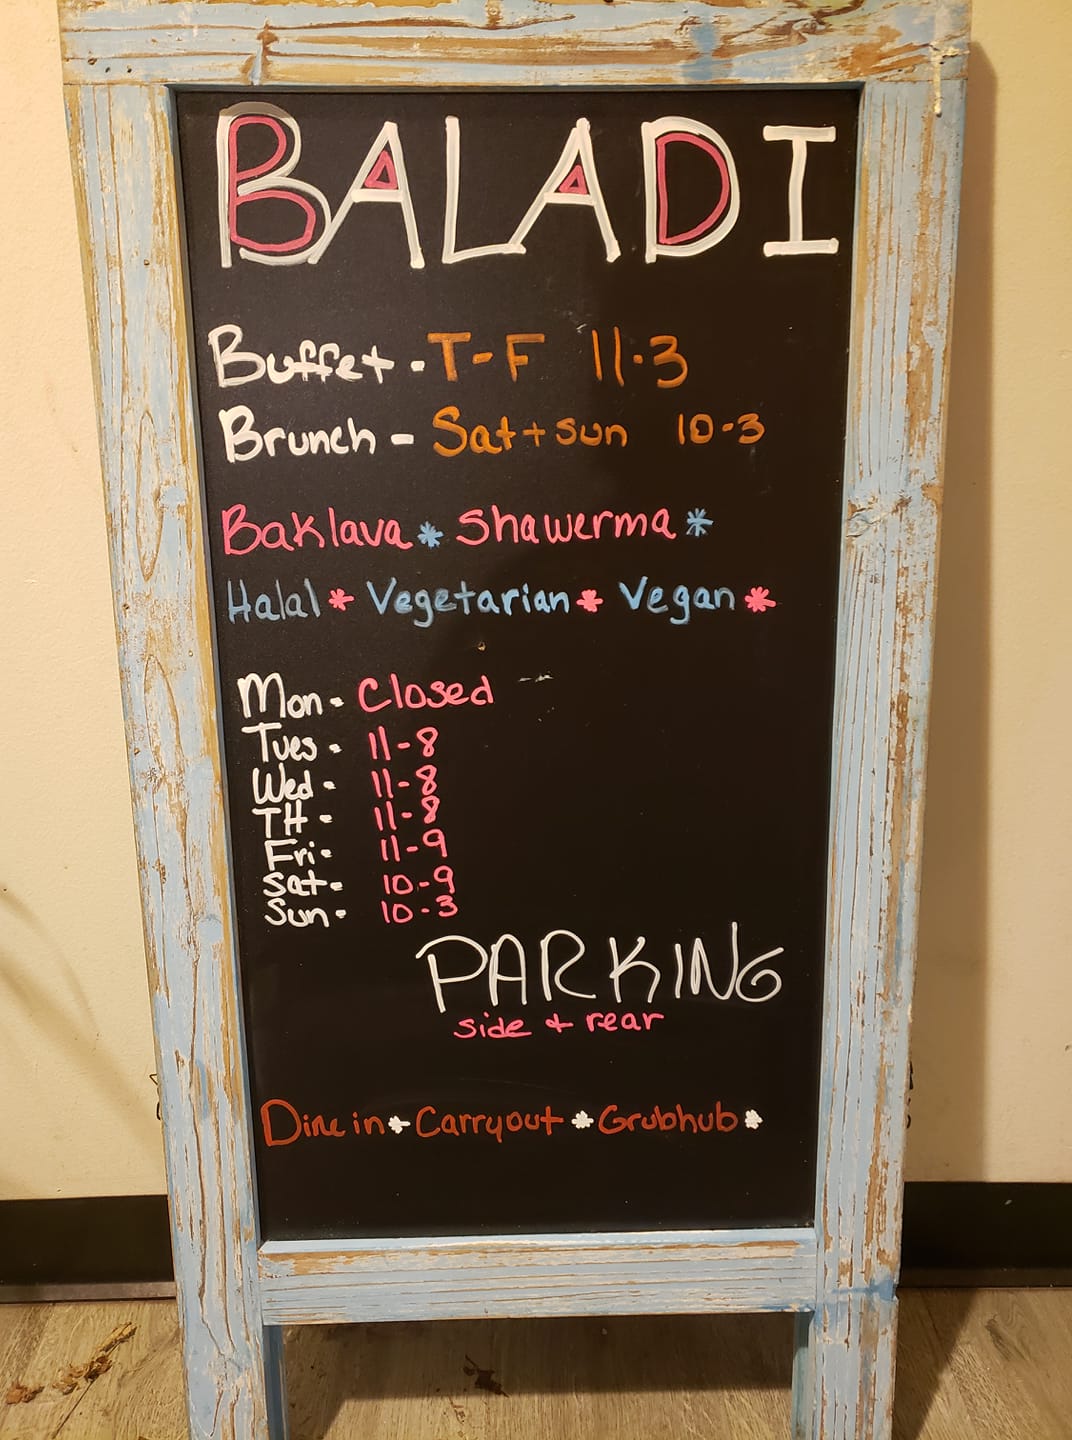 BALADI
Buffet - T-F 11-3
Brunch - Sat + sun 10-3
Baklava * Shawerma *
Halal * Vegetarian * Vegan *
Mon - Closed
Tues - 11-8
Wed - 11-8
TH - 11-8
Fri - 11-9
Sat - 10-9
Sun - 10-3
PARKING
side + rear
Dine in * Carryout * Grubhub *